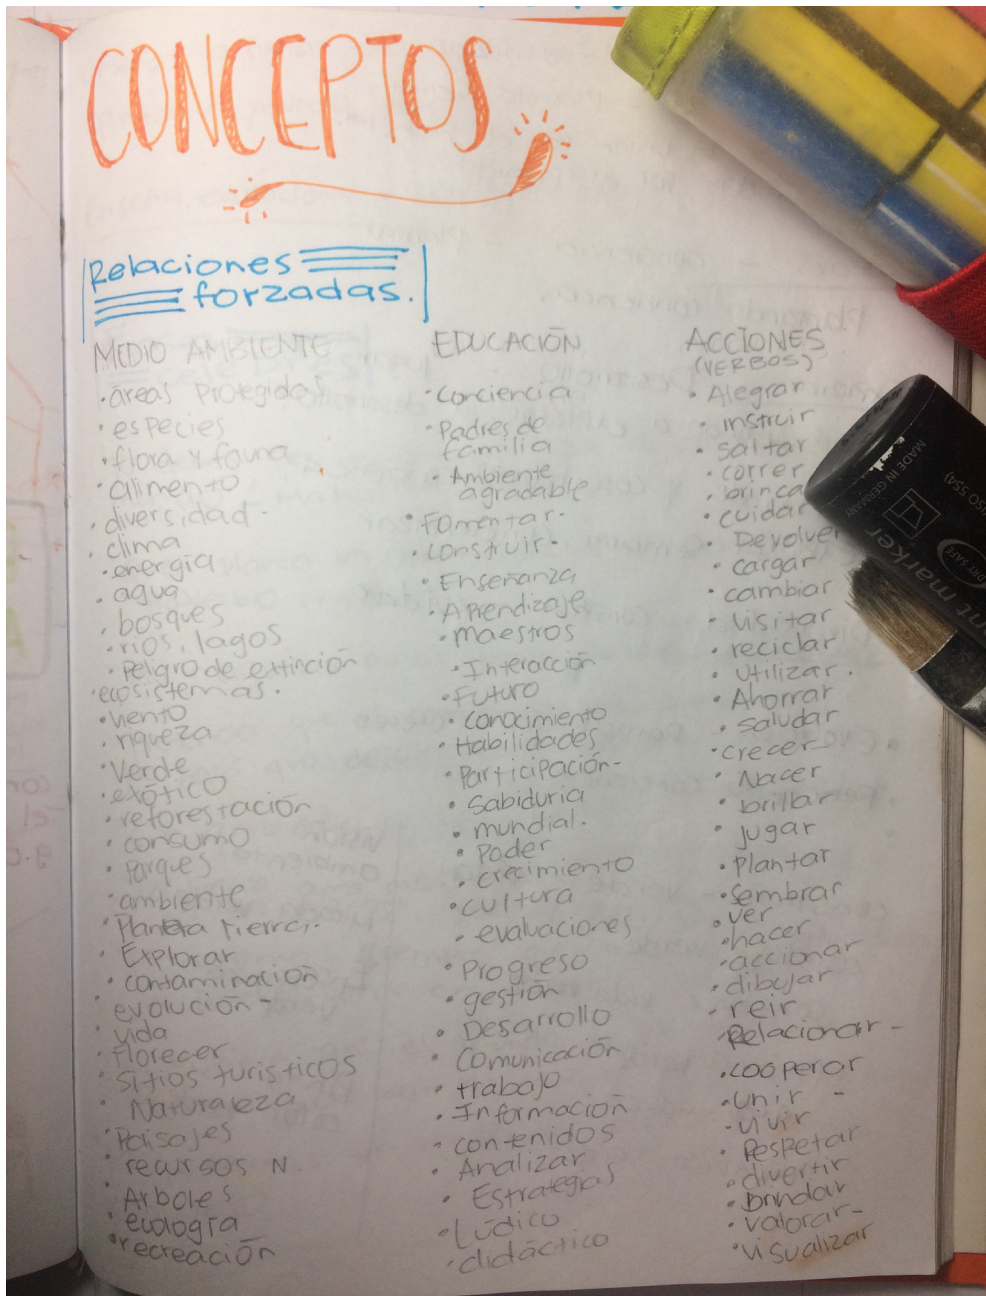 CONCEPTOS
Relaciones
forzadas.
MEDIO AMBIENTE
• áreas Protegidas
• especies
• flora y fauna
• alimento
• diversidad.
• clima
• energía
• agua
• bosques
• rios, lagos
• Peligro de extinción
• ecosistemas.
• viento
• riqueza
• Verde
• exótico
• reforestación
• consumo
• Parques
• ambiente
• Planeta Tierra.
• Explorar
• contaminación
• evolución -
• vida
• Florecer
• sitios turisticos
• Naturaleza
• Paisajes
• recursos N.
• Arboles
• ecología
• recreación
EDUCACIÓN
• Conciencia
• Padres de
familia
• Ambiente
agradable
• Fomentar.
• construir-
• Enseñanza
• Aprendizaje
• maestros
• Interacción
• Futuro
• conocimiento
• Habilidades
• Participación-
• Sabiduria
• mundial.
• Poder
• crecimiento
• cultura
• evaluaciones
• Progreso
• gestión
• Desarrollo
• Comunicación
• trabajo
• Información
• contenidos
• Analizar
• Estrategias
• Lúdico
• didáctico
ACCIONES
(VERBOS)
• Alegrar
• instruir
• saltar
• correr
• brinca
• cuidar
• Devolver
• cargar
• cambiar
• visitar
• reciclar
• Utilizar.
• Ahorrar
• saludar
• crecer-
• Nacer
• brillar
• jugar
• Plantar
• Sembrar
• ver
• hacer
• accionar
• dibujar
• reir
• Relacionar -
• cooperar
• unir -
• vivir
• Respetar
• divertir
• Brindar
• valorar-
• visualizar
MADE IN GERMANY
nt marker